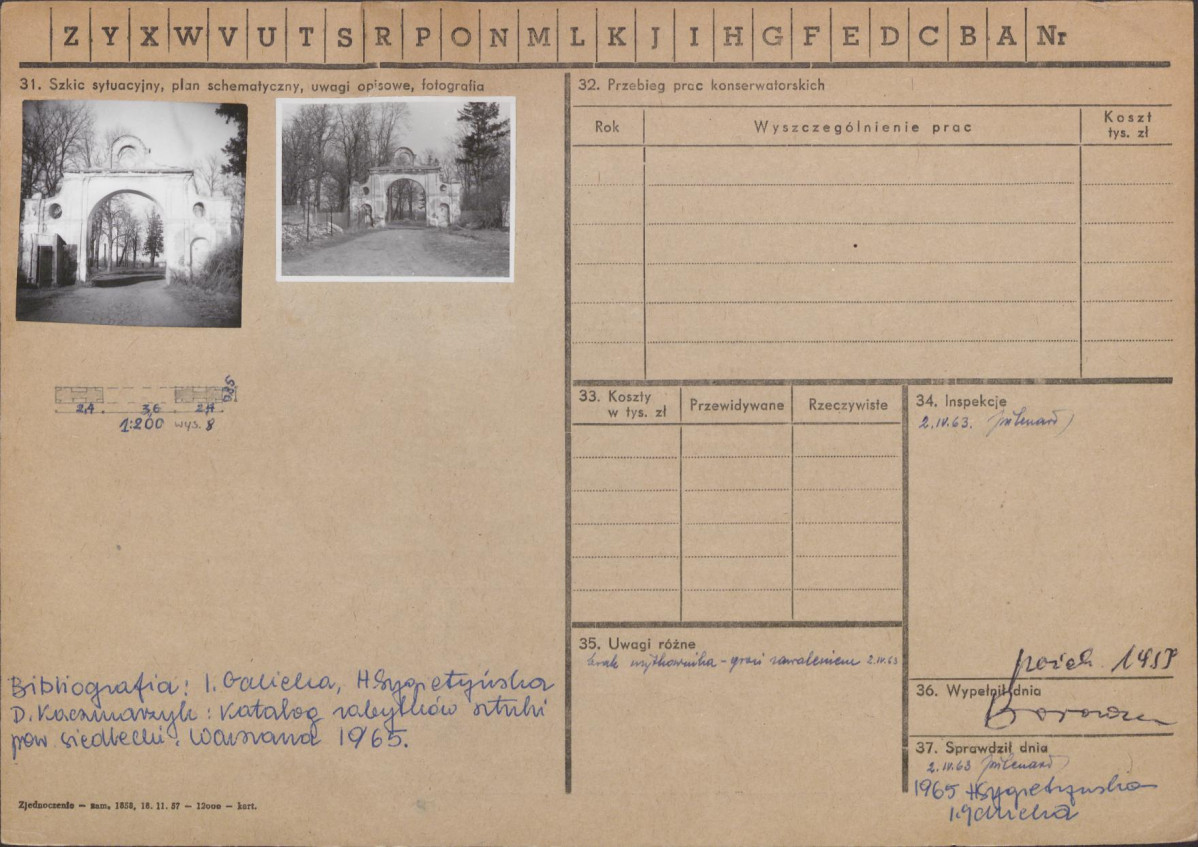 Z Y X W V U T S R P O N M L K J I H G F E D C B A Nr
31. Szkic sytuacyjny, plan schematyczny, uwagi opisowe, fotografia
2,4 3,6 2,4 0,95
1:200 wys. 8
Bibliografia: I. Galicka, H. Sygietyńska
D. Kaczmarzyk: Katalog zabytków sztuki
pow. siedlecki. Warszawa 1965.
Zjednoczenie — zam. 1558, 18. 11. 57 — 12000 — kart.
32. Przebieg prac konserwatorskich
Rok Wyszczególnienie prac Koszt
tys. zł
33. Koszty
w tys. zł
Przewidywane Rzeczywiste
34. Inspekcje
2.IV.63.
35. Uwagi różne
brak użytkownika - grozi zawaleniem 2.IV.63
paźdz. 1959
36. Wypełnił dnia
37. Sprawdził dnia
2.IV.63
1965 H. Sygietyńska
I. Galicka